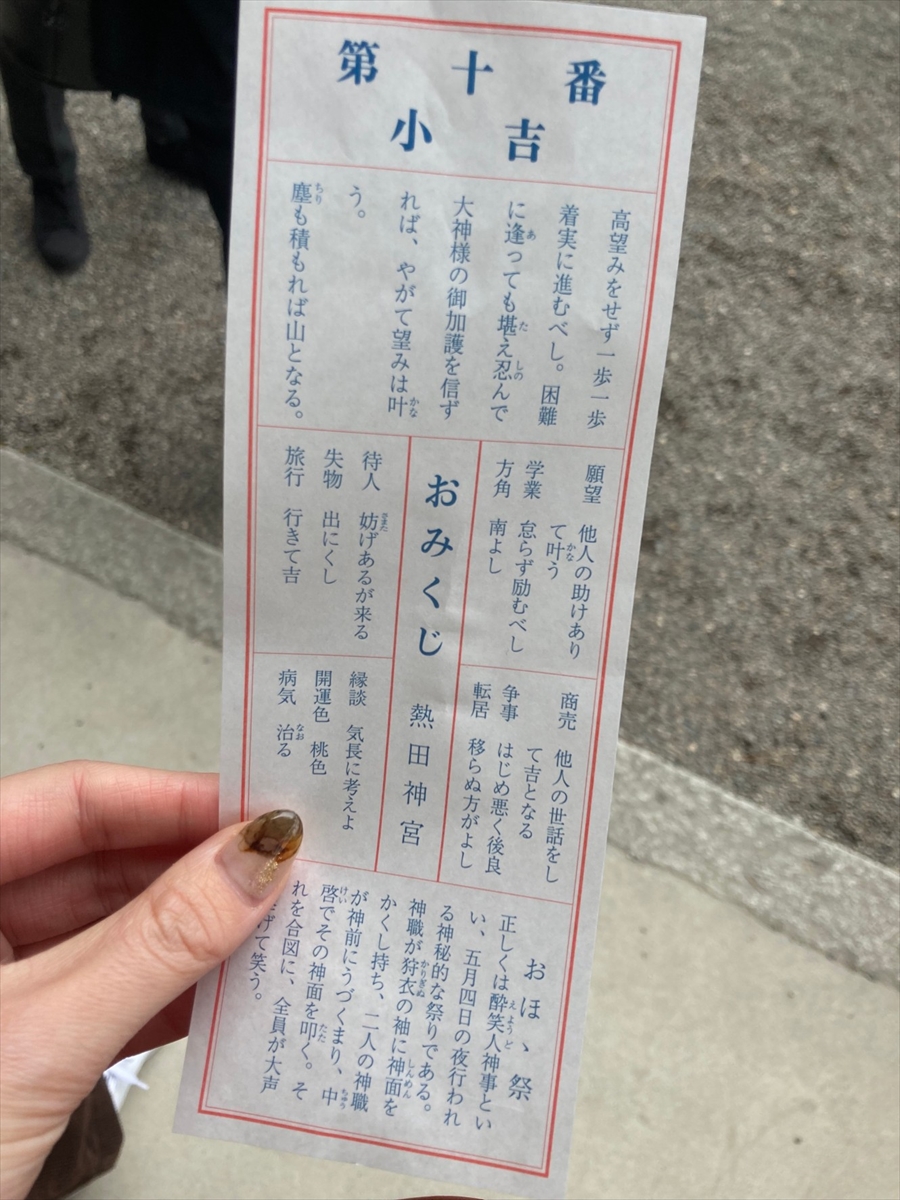 第十番
小吉
高望みをせず一歩一歩
着実に進むべし。困難
に逢っても堪え忍んで
大神様の御加護を信ず
れば、やがて望みは叶
う。
塵も積もれば山となる。
願望 他人の助けあり
て叶う
学業 怠らず励むべし
方角 南よし
商売 他人の世話をし
て吉となる
争事 はじめ悪く後良
転居 移らぬ方がよし
おみくじ 熱田神宮
待人 妨げあるが来る
失物 出にくし
旅行 行きて吉
縁談 気長に考えよ
開運色 桃色
病気 治る
おほゝ祭
正しくは酔笑人神事とい
い、五月四日の夜行われ
る神秘的な祭りである。
神職が狩衣の袖に神面を
かくし持ち、二人の神職
が神前にうづくまり、中
啓でその神面を叩く。そ
れを合図に、全員が大声
げて笑う。